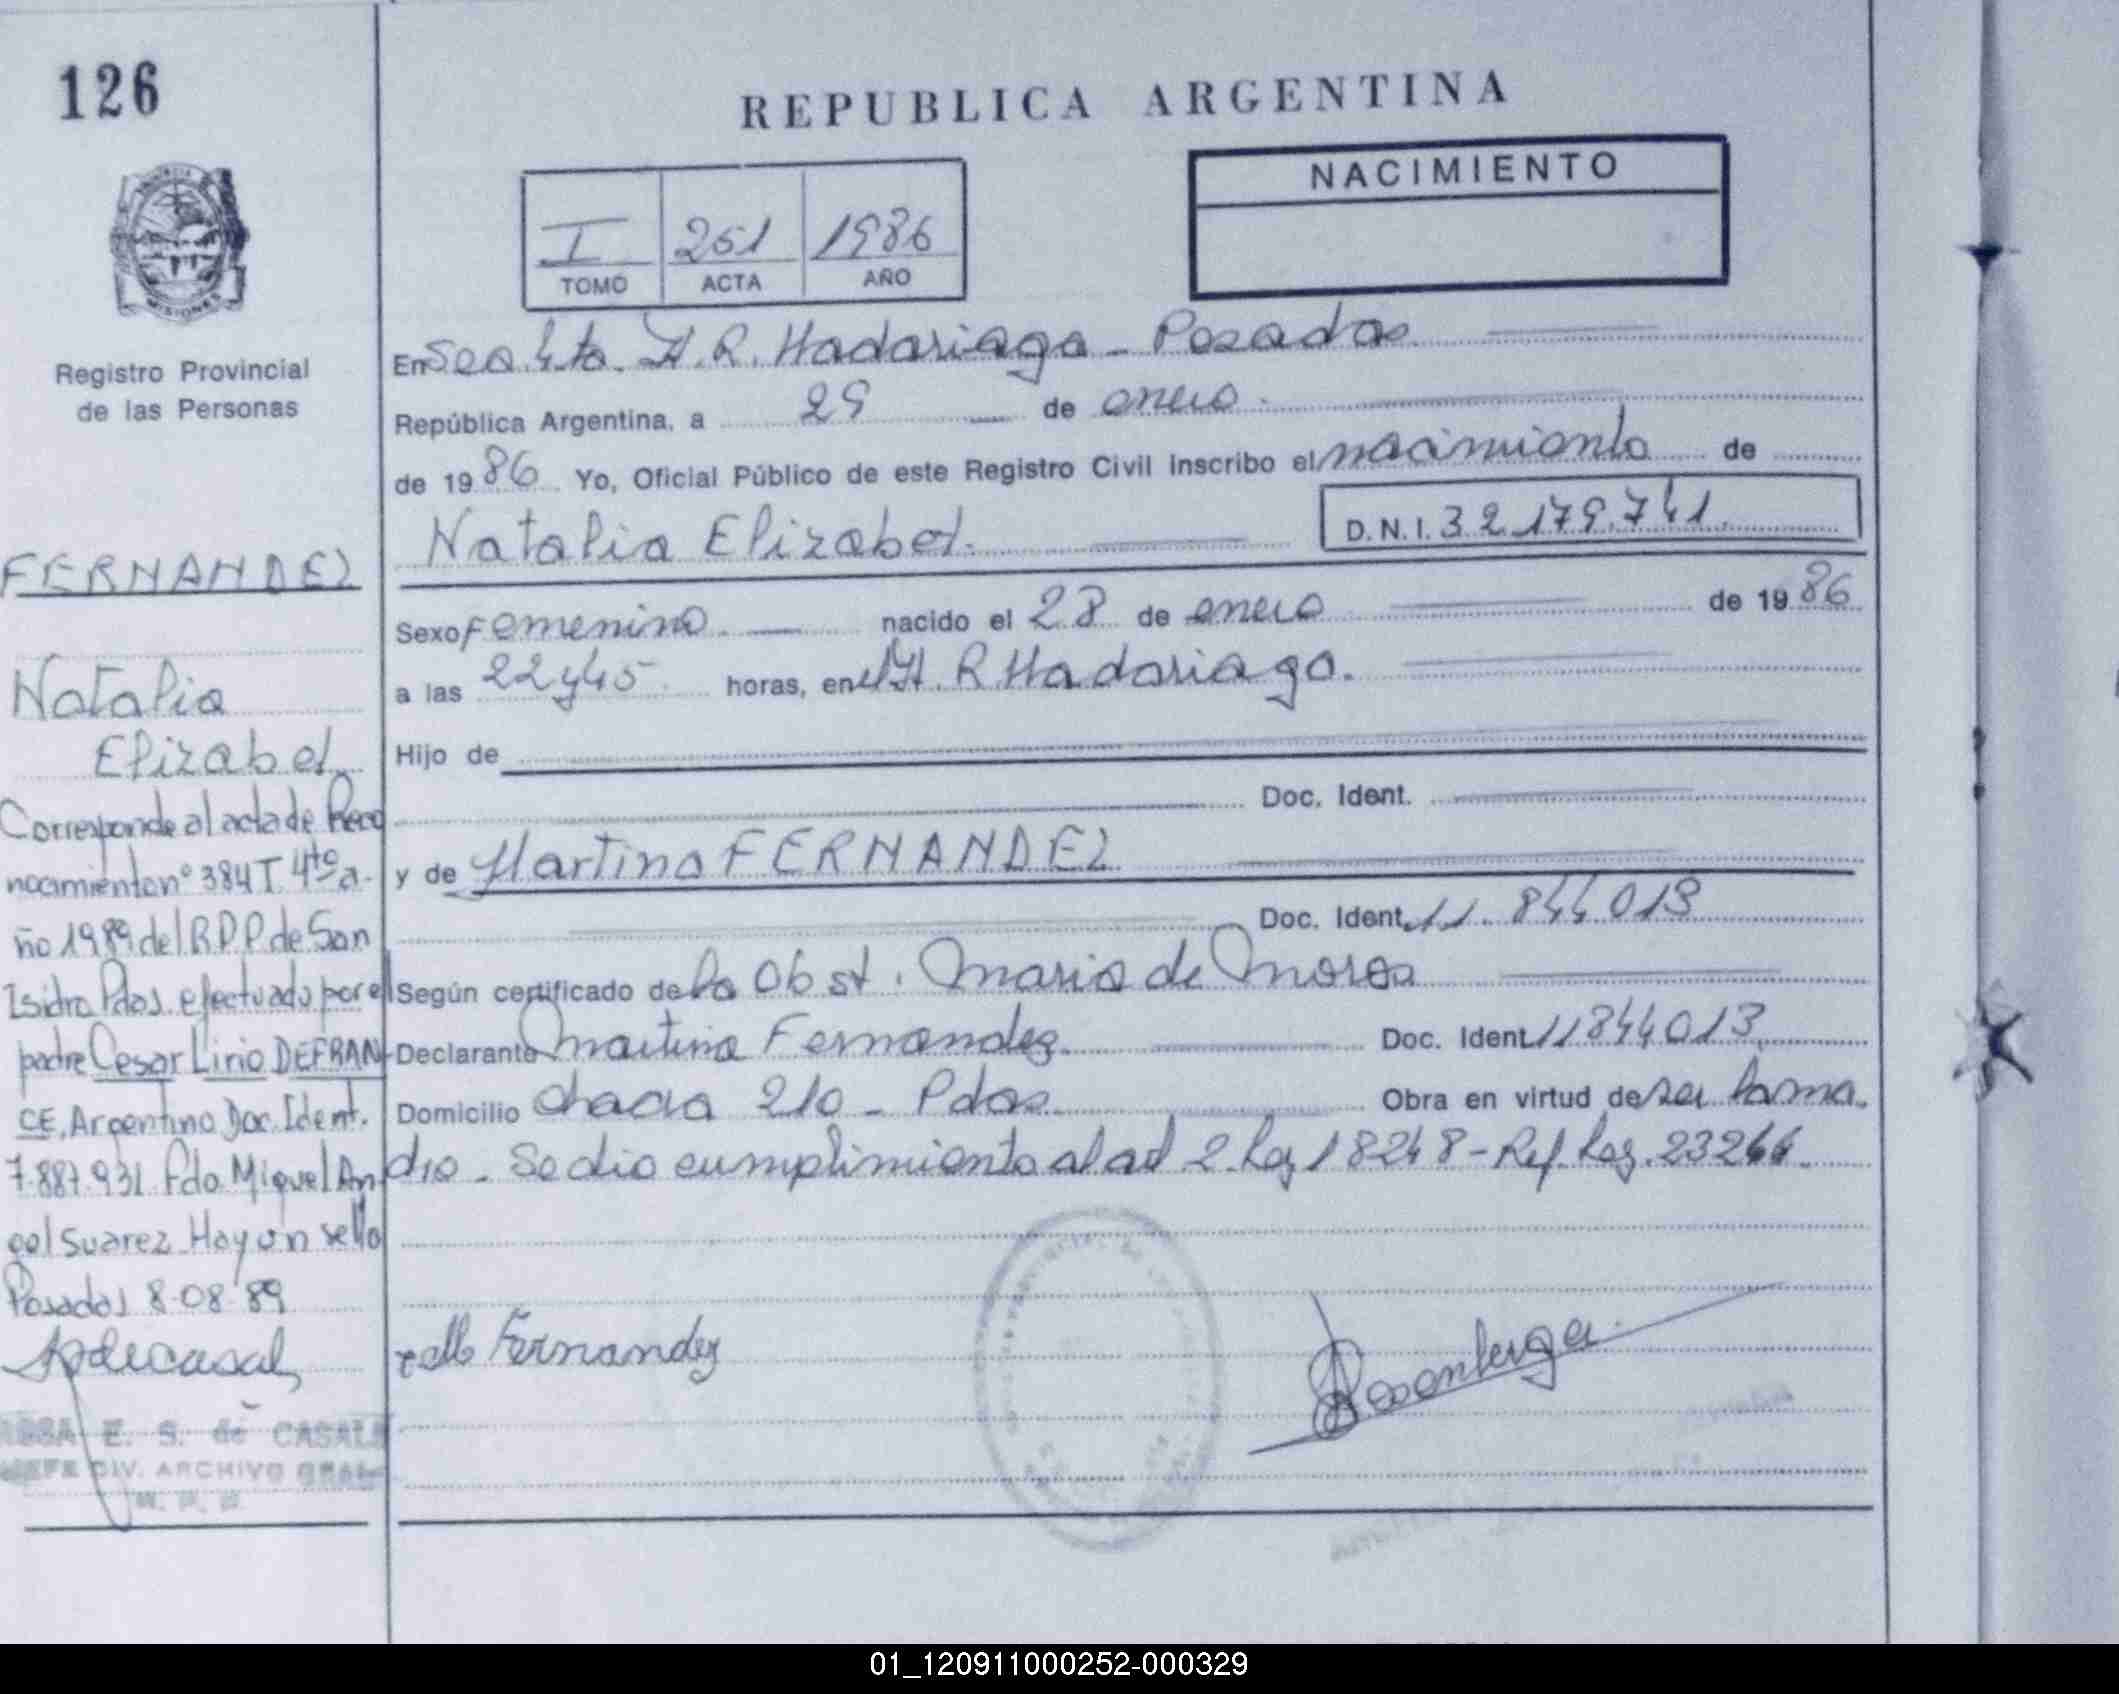 126
REPUBLICA ARGENTINA
NACIMIENTO
I 251 1986
TOMO ACTA AÑO
PROVINCIA DE
MISIONES
Registro Provincial
de las Personas
FERNANDEZ
Natalia
Elizabet
Corresponde al acta de Reco
nocimiento n° 384 T 4to a-
ño 1989 del R.P.P. de San
Isidro Pdas. efectuado por el
padre Cesar Lirio DEFRAN-
CE, Argentino Doc. Ident.
7.887.931 Fdo Miguel An-
gel Suarez Hay un sello
Posadas 8-08-89
ROSA E. S. de CASALS
JEFE DIV. ARCHIVO GRAL
En Sec. 4ta. H. R. Madariaga - Posadas
República Argentina, a 29 de enero
de 1986 Yo, Oficial Público de este Registro Civil inscribo el nacimiento de
Natalia Elizabet. D.N.I. 32.179.741.
Sexo Femenino nacido el 28 de enero de 1986
a las 22 y 45 horas, en el H. R Madariaga.
Hijo de
Doc. Ident.
y de Martina FERNANDEZ
Doc. Ident. 11.844013
Según certificado de la Obst. Maria de Moros
Declarante Martina Fernandez Doc. Ident. 11844013
Domicilio chacra 210 - Pdas. Obra en virtud de ser la ma
dre. Se dio cumplimiento al art 2. Ley 18248 - Ref. Ley. 23264.
Fernandez
01_120911000252-000329